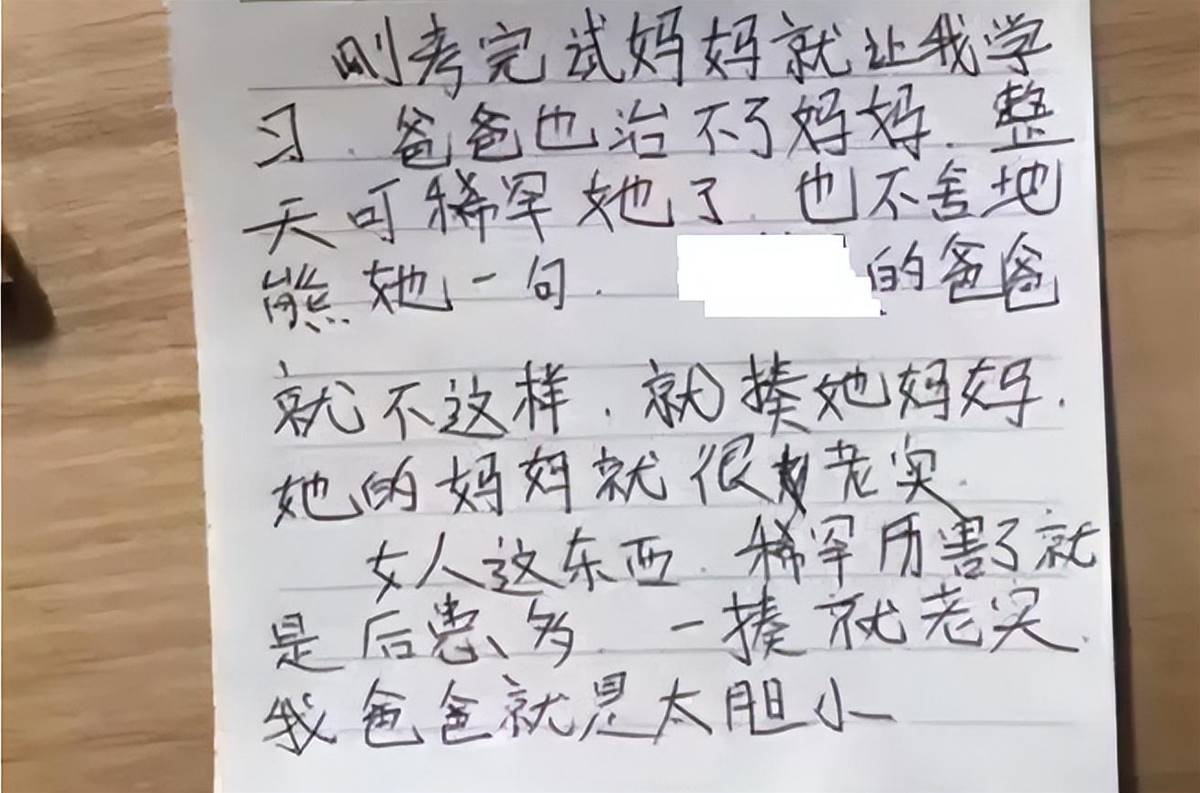 刚考完试妈妈就让我学
习.爸爸也治不了妈妈.整
天可稀罕她了.也不舍地
熊她一句. 的爸爸
就不这样.就揍她妈妈.
她的妈妈就很老实.
女人这东西.稀罕历害了就
是后患多.一揍就老实.
我爸爸就是太胆小